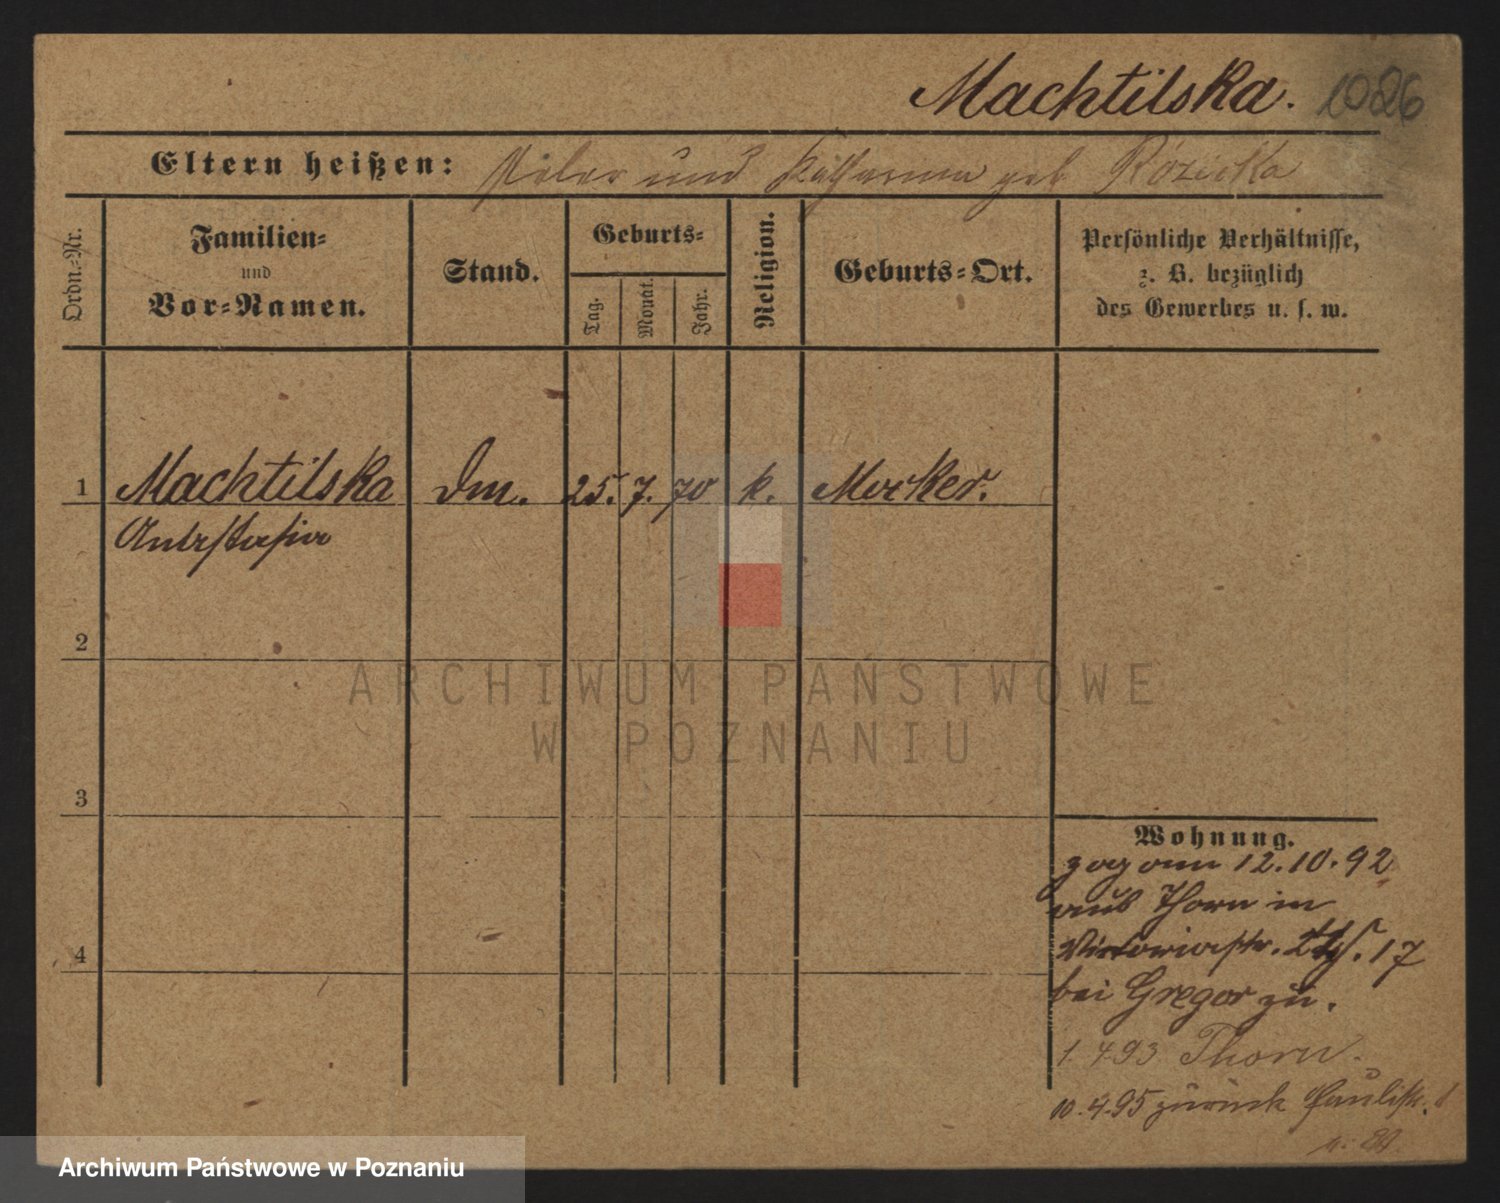 Machtilska. 1026
Eltern heißen: Peter und Katharina geb Rózicka
Ordn.-Nr.
Familien-
und
Vor-Namen.
Stand.
Geburts-
Tag.
Monat.
Jahr.
Religion.
Geburts-Ort.
Persönliche Verhältnisse,
z. B. bezüglich
des Gewerbes u. s. w.
1 Machtilska Dm. 25. 7. 70 k. Mocker.
Anastasia
2
3
4
Wohnung.
zog am 12.10.92
aus Thorn in
Victoriastr. 17
bei Gregor zu.
1.4.93 Thorn.
10.4.95 zurück Paulistr.
ARCHIWUM PAŃSTWOWE
W POZNANIU
Archiwum Państwowe w Poznaniu